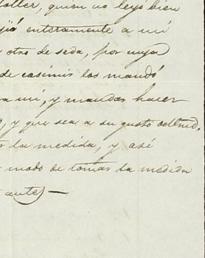 quien no leyó bien
enteramente a mi
y otro de seda, por cuya
de casimir los mandó
a mi, y mandar hacer
y que sea a su gusto
la medida, y así
modo de tomar la medida
antes —